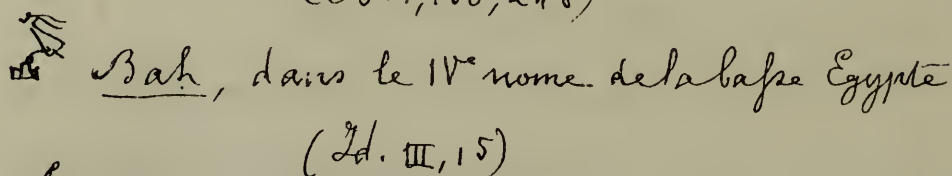 Bah, dans le IVe nome de la basse Egypte
(Id. III, 15)